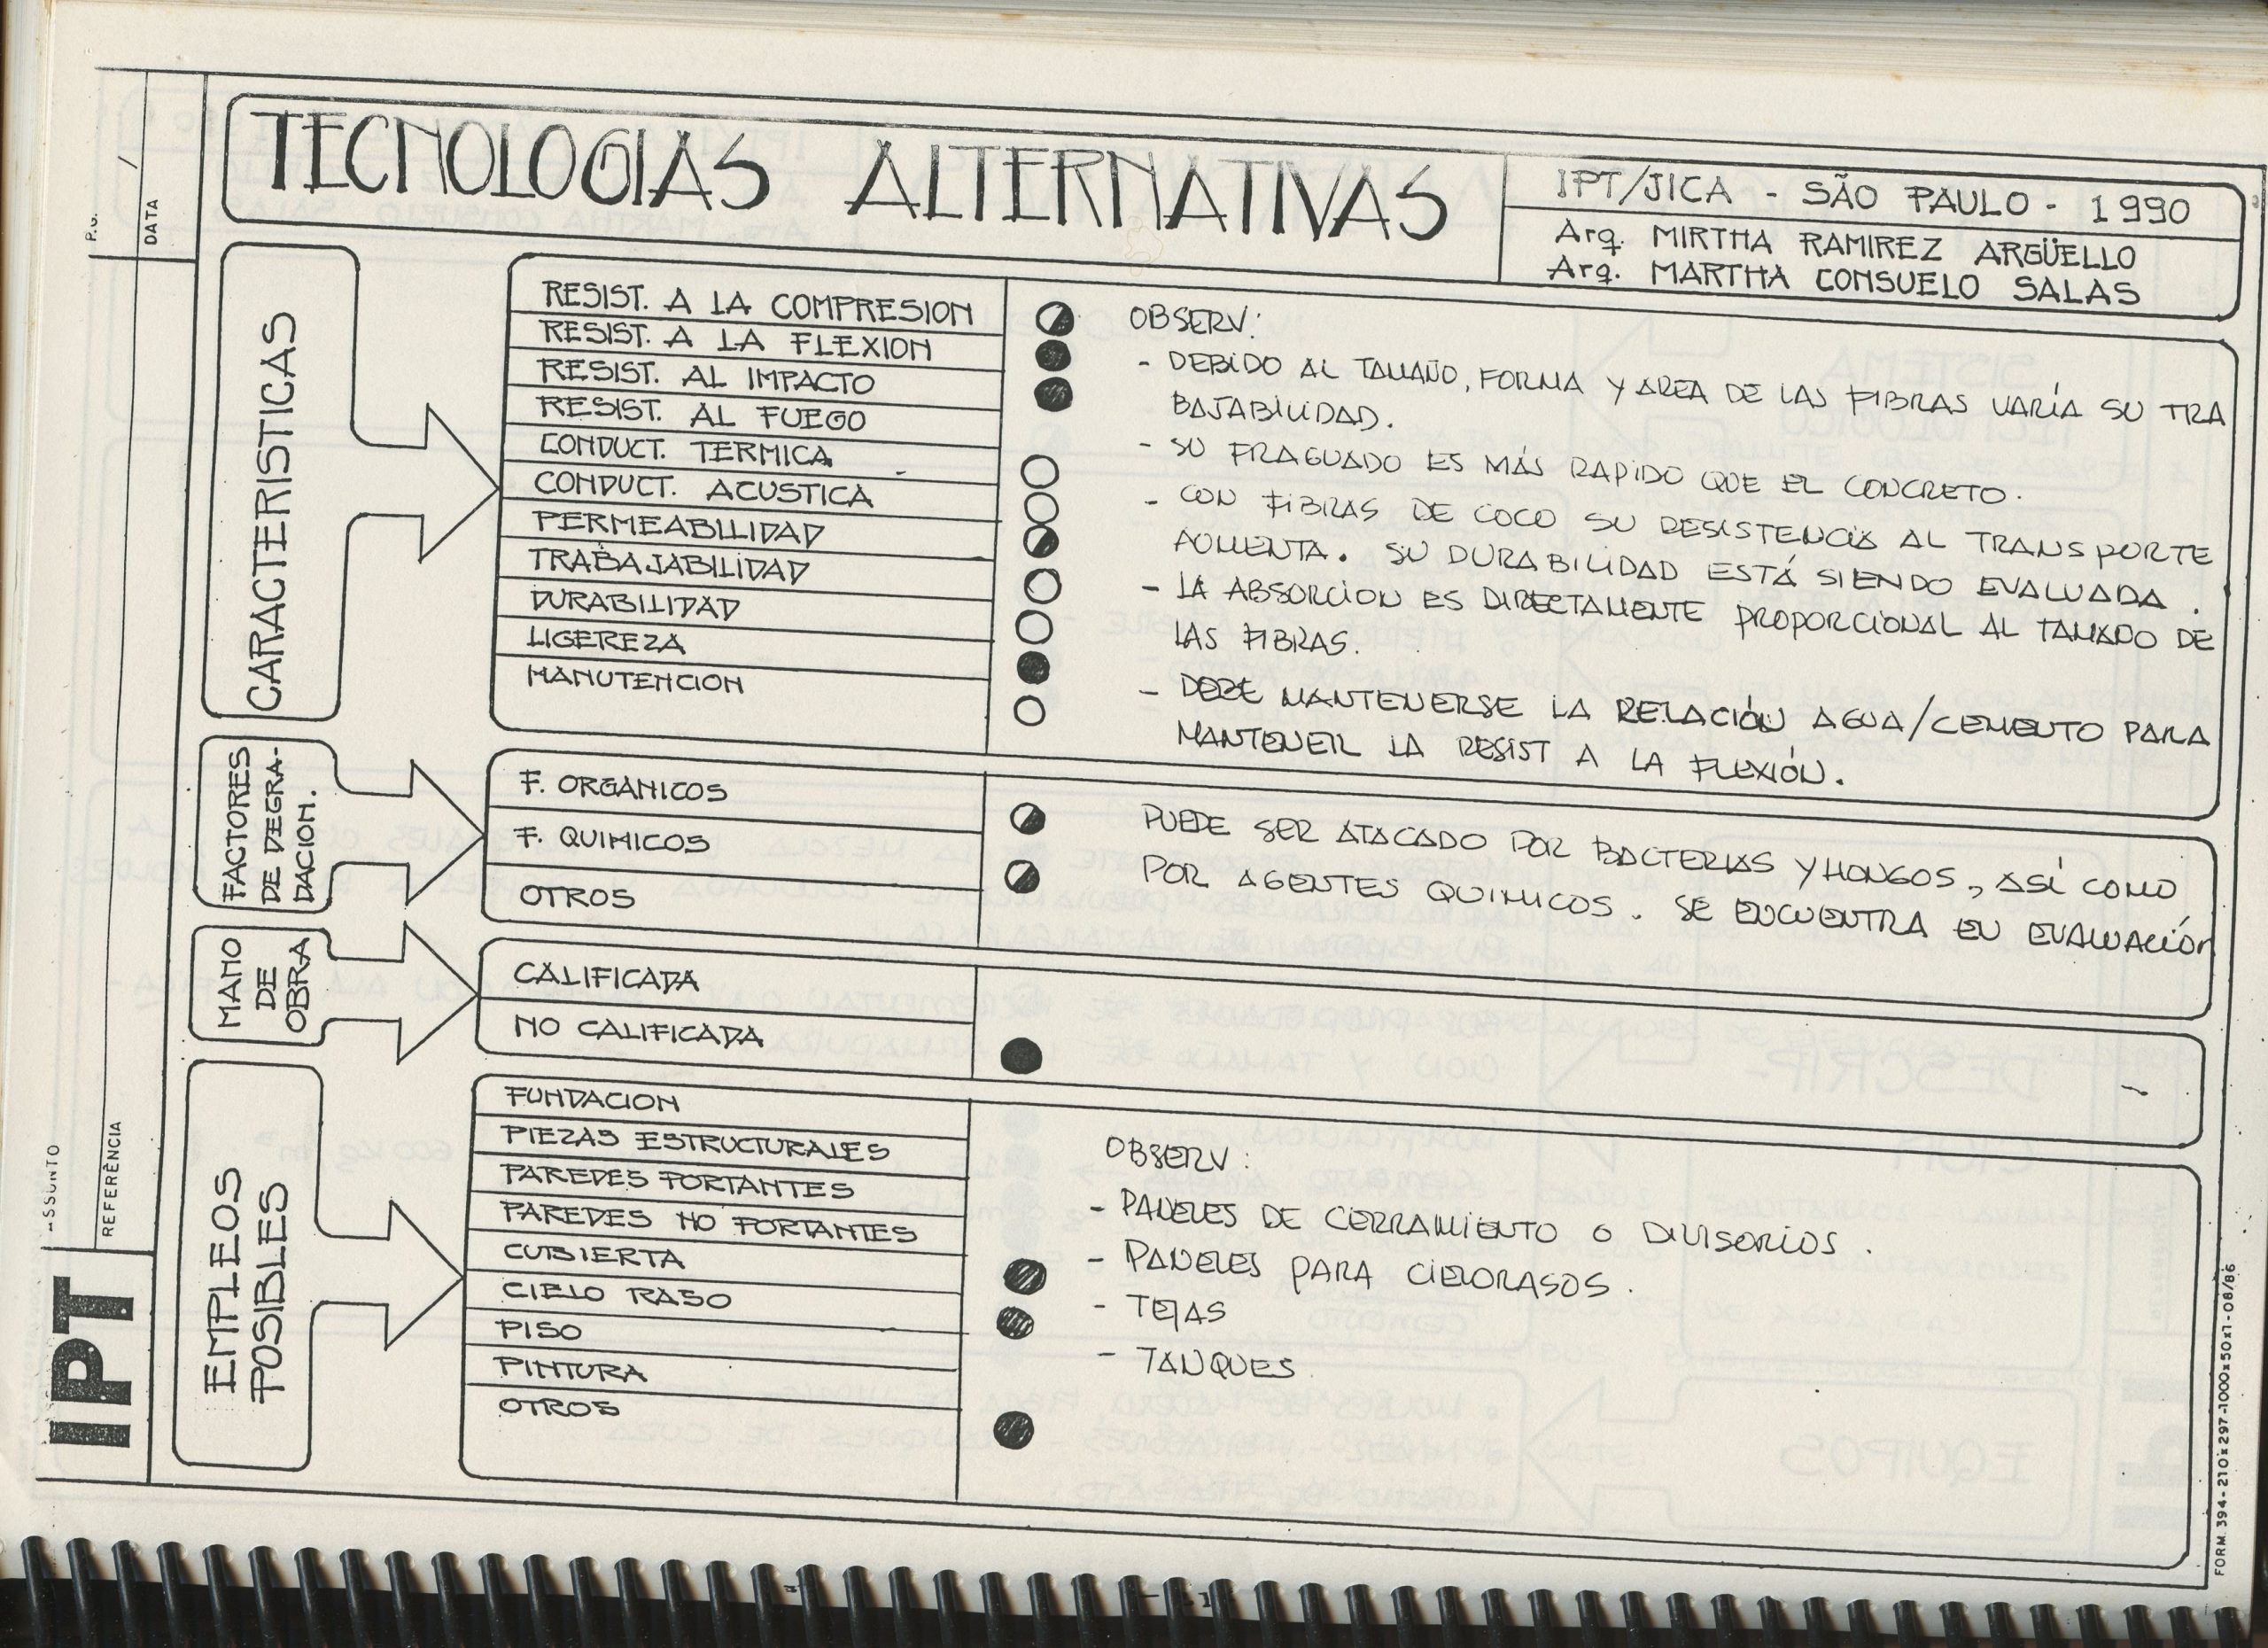 TECNOLOGIAS ALTERNATIVAS
IPT/JICA - SÃO PAULO - 1990
Arq. MIRTHA RAMIREZ ARGÜELLO
Arq. MARTHA CONSUELO SALAS
P.G.
/
DATA
CARACTERISTICAS
RESIST. A LA COMPRESION
RESIST. A LA FLEXION
RESIST. AL IMPACTO
RESIST. AL FUEGO
CONDUCT. TERMICA
CONDUCT. ACUSTICA
PERMEABILIDAD
TRABAJABILIDAD
DURABILIDAD
LIGEREZA
MANUTENCION
OBSERV:
- DEBIDO AL TAMAÑO, FORMA Y AREA DE LAS FIBRAS VARÍA SU TRA
BAJABILIDAD.
- SU FRAGUADO ES MÁS RAPIDO QUE EL CONCRETO.
- CON FIBRAS DE COCO SU RESISTENCIA AL TRANSPORTE
AUMENTA. SU DURABILIDAD ESTÁ SIENDO EVALUADA.
- LA ABSORCION ES DIRECTAMENTE PROPORCIONAL AL TAMAÑO DE
LAS FIBRAS.
- DEBE MANTENERSE LA RELACIÓN AGUA/CEMENTO PARA
MANTENER LA RESIST A LA FLEXIÓN.
FACTORES
DE DEGRA-
DACION.
F. ORGANICOS
F. QUIMICOS
OTROS
PUEDE SER ATACADO POR BACTERIAS Y HONGOS, ASÍ COMO
POR AGENTES QUIMICOS. SE ENCUENTRA EN EVALUACIÓN
MANO
DE
OBRA
CALIFICADA
NO CALIFICADA
EMPLEOS
POSIBLES
FUNDACION
PIEZAS ESTRUCTURALES
PAREDES PORTANTES
PAREDES NO PORTANTES
CUBIERTA
CIELO RASO
PISO
PINTURA
OTROS
OBSERV:
- PANELES DE CERRAMIENTO O DIVISORIOS.
- PANELES PARA CIELORASOS.
- TEJAS
- TANQUES
SSUNTO
REFERÊNCIA
IPT
FORM. 394-210x297-1000x50x1-08/86